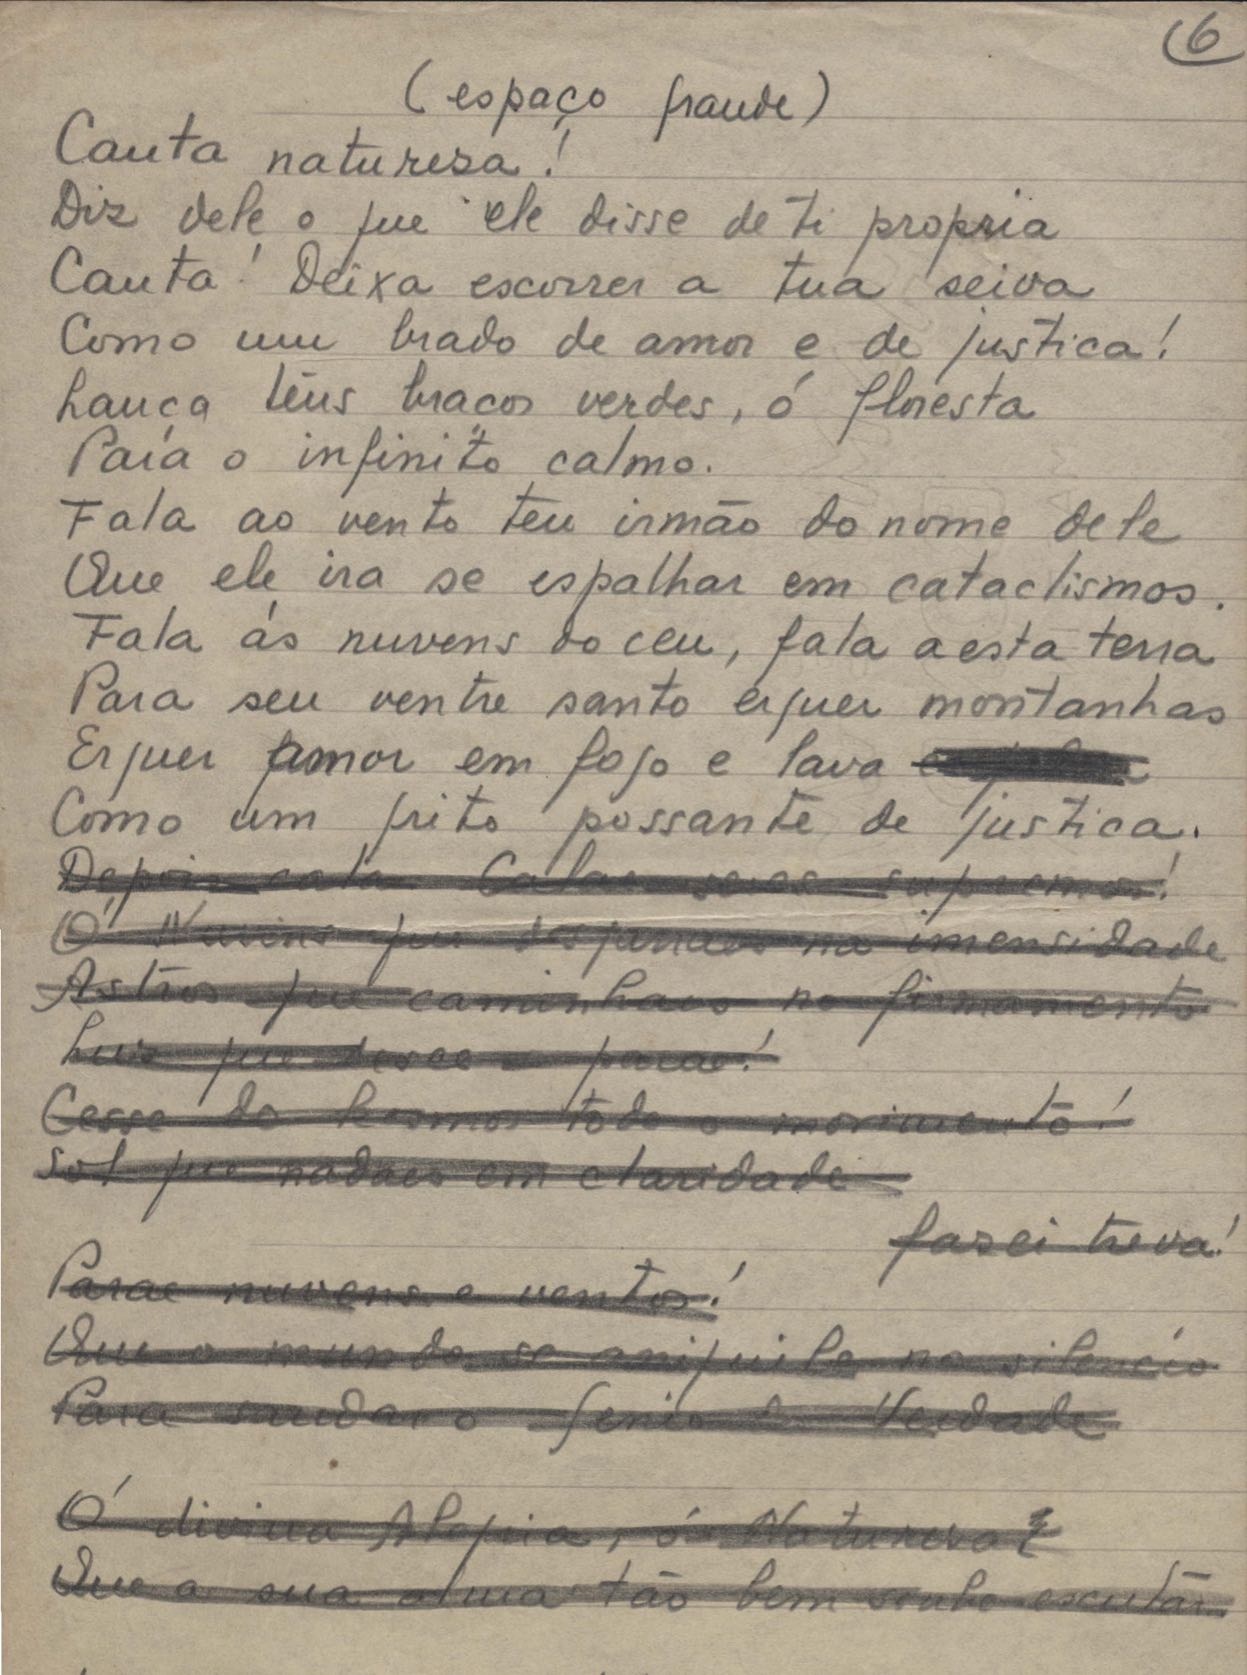 6
(espaço grande)
Canta natureza!
Diz dele o que ele disse de ti propria
Canta! Deixa escorrer a tua seiva
Como um brado de amor e de justiça!
Lança teus braços verdes, ó floresta
Para o infinito calmo.
Fala ao vento teu irmão do nome dele
Que ele ira se espalhar em cataclismos.
Fala ás nuvens do ceu, fala a esta terra
Para seu ventre santo erguer montanhas
Erguer amor em fogo e lava
Como um grito possante de justiça.
Depois cala Calae seres supremos!
Ó Nuvens que na imensidade
Astros que caminhaes no firmamento
Luz que desce parae!
Cesse do kosmos todo o movimento!
Sol que nadaes em claridade
fazei treva!
Parae nuvens e ventos!
Que o mundo se aniquile no silencio
Para saudar o genio da Verdade
Ó divina Alegria, ó Natureza
Que a sua alma tão bem soube escutar